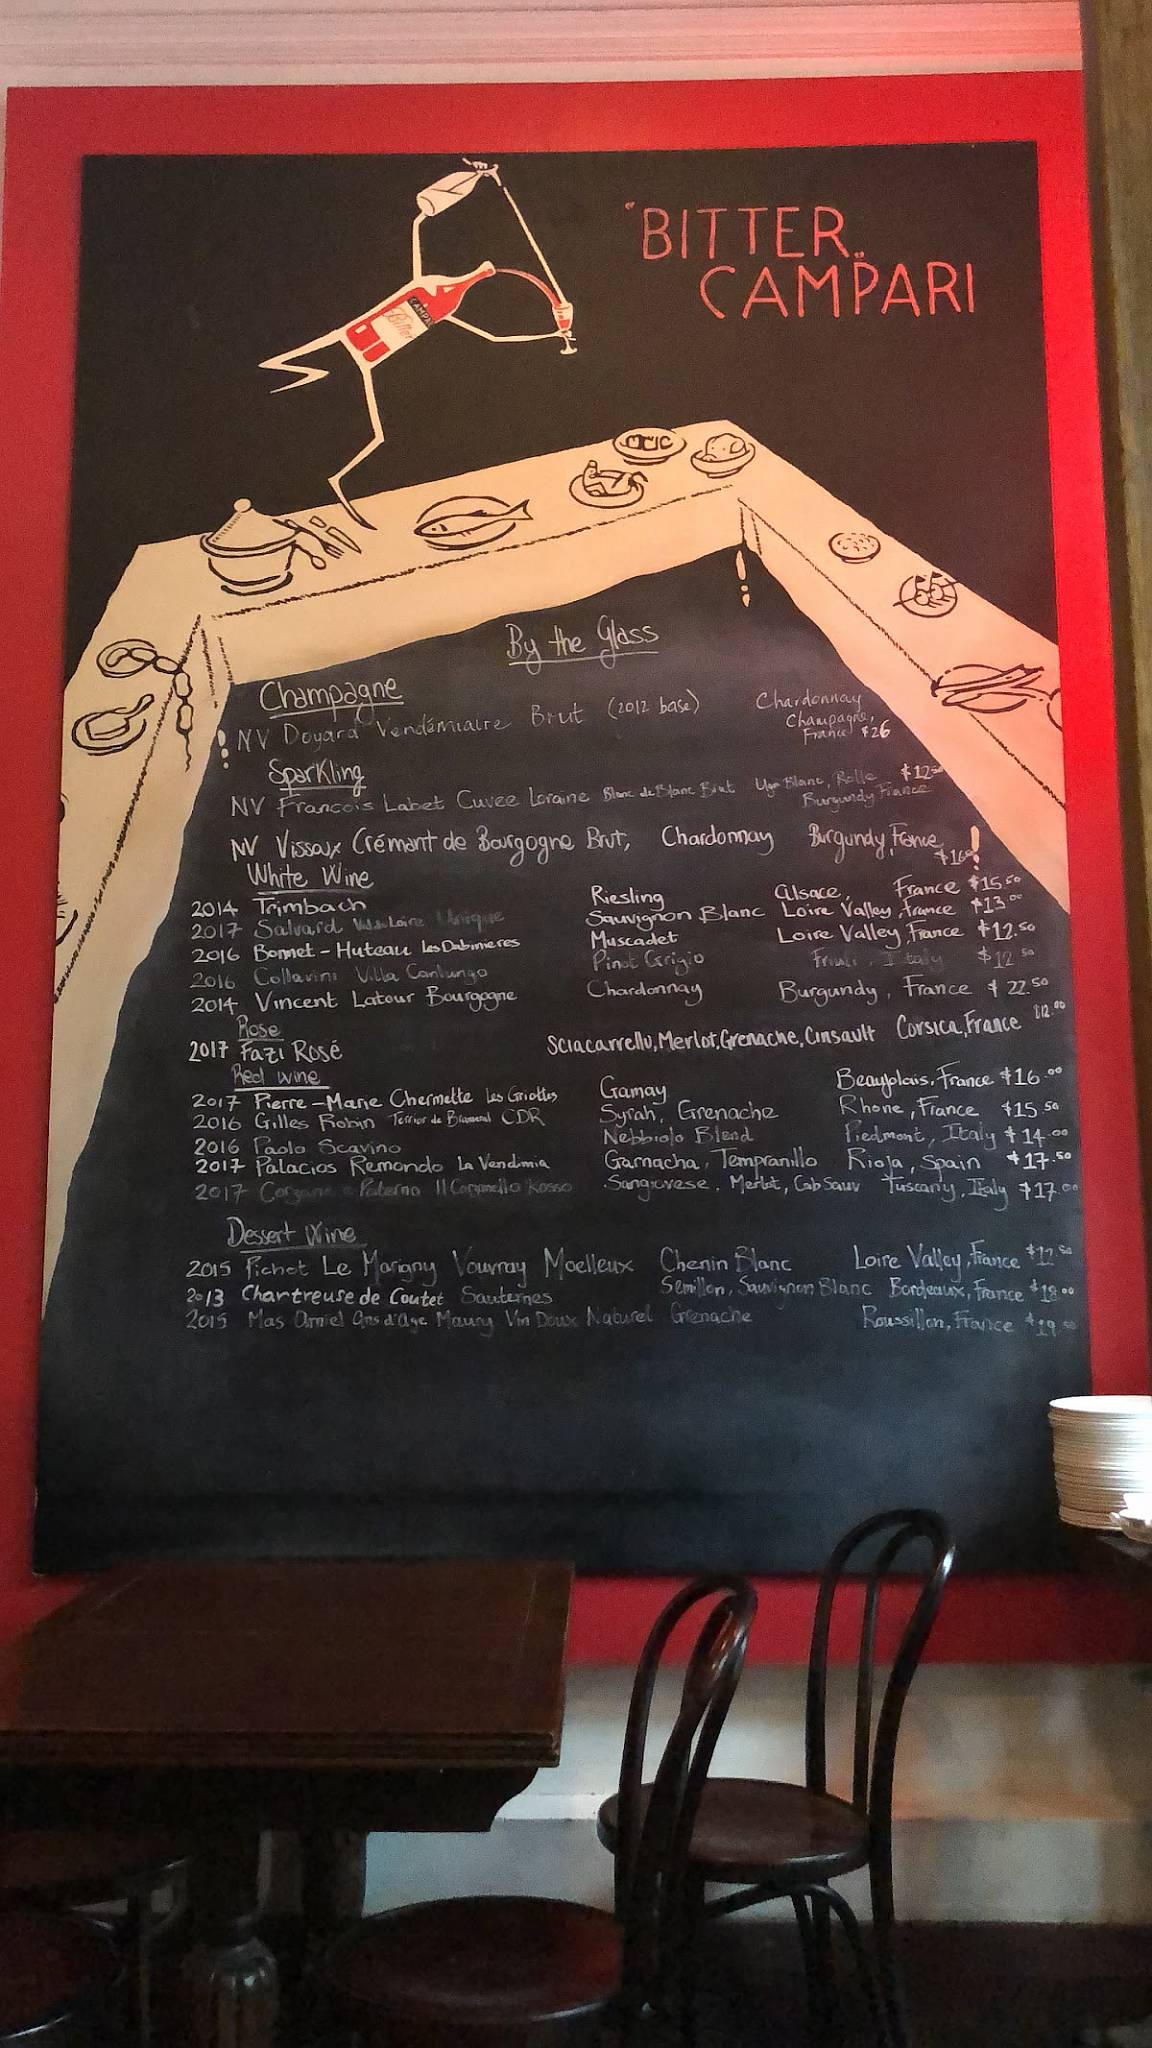 "BITTER
CAMPARI"
CAMPARI
Bitter
By the Glass
Champagne
NV Doyard Vendémiaire Brut (2012 base) Chardonnay
Champagne,
France $26
Sparkling
NV Francois Labet Cuvee Loraine Blanc de Blanc Brut Ugni Blanc, Rolle $12.50
Burgundy France
NV Vissoux Crémant de Bourgogne Brut, Chardonnay Burgundy, France
White Wine
2014 Trimbach Riesling Alsace, France $15.50
2017 Salvard Unique Sauvignon Blanc Loire Valley, France $13.00
2016 Bonnet-Huteau Les Dabinieres Muscadet Loire Valley, France $12.50
2016 Collavini Villa Canlungo Pinot Grigio Friuli, Italy $12.50
2014 Vincent Latour Bourgogne Chardonnay Burgundy, France $22.50
Rose
2017 Fazi Rosé Sciacarrellu, Merlot, Grenache, Cinsault Corsica, France $12.00
Red wine
2017 Pierre-Marie Chermette Les Griottes Gamay Beaujolais, France $16.00
2016 Gilles Robin CDR Syrah, Grenache Rhone, France $15.50
2016 Paolo Scavino Nebbiolo Blend Piedmont, Italy $14.00
2017 Palacios Remondo La Vendimia Garnacha, Tempranillo Rioja, Spain $17.50
2017 Paterno Il Rosso Sangiovese, Merlot, Cab Sauv Tuscany, Italy $17.00
Dessert Wine
2015 Pichot Le Marigny Vouvray Moelleux Chenin Blanc Loire Valley, France $12.50
2013 Chartreuse de Coutet Sauternes Semillon, Sauvignon Blanc Bordeaux, France $18.00
2015 Mas Amiel ans d'Age Maury Vin Doux Naturel Grenache Roussillon, France $19.50